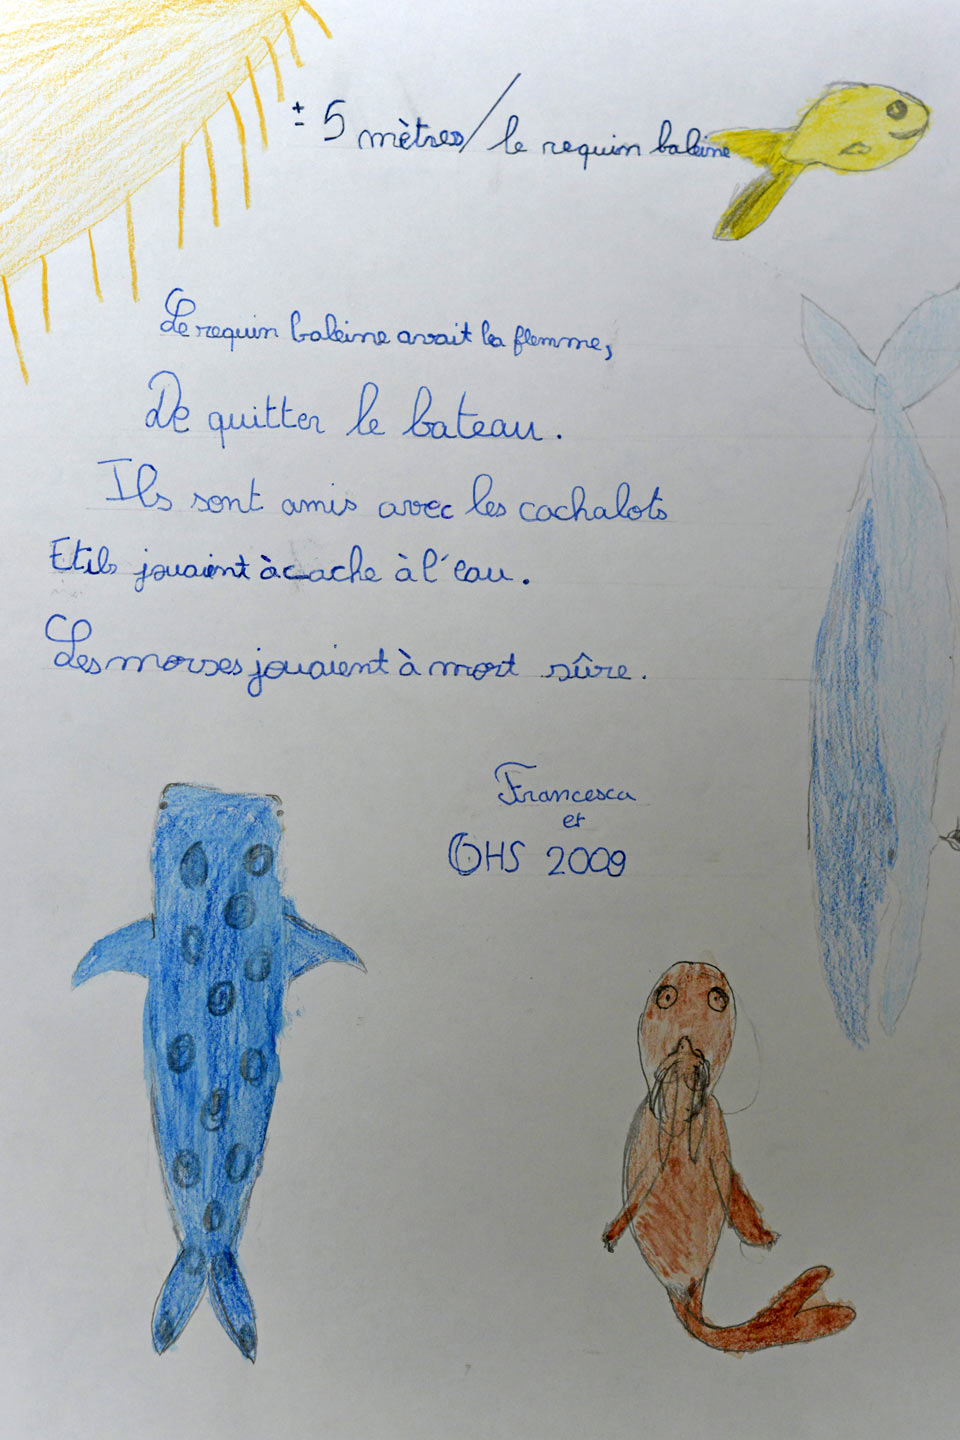 ± 5 mètres/le requin baleine
Le requin baleine avait la flemme,
De quitter le bateau.
Ils sont amis avec les cachalots
Et ils jouaient à cache à l'eau.
Les morses jouaient à mort sûre.
Francesca
et
OHS 2009